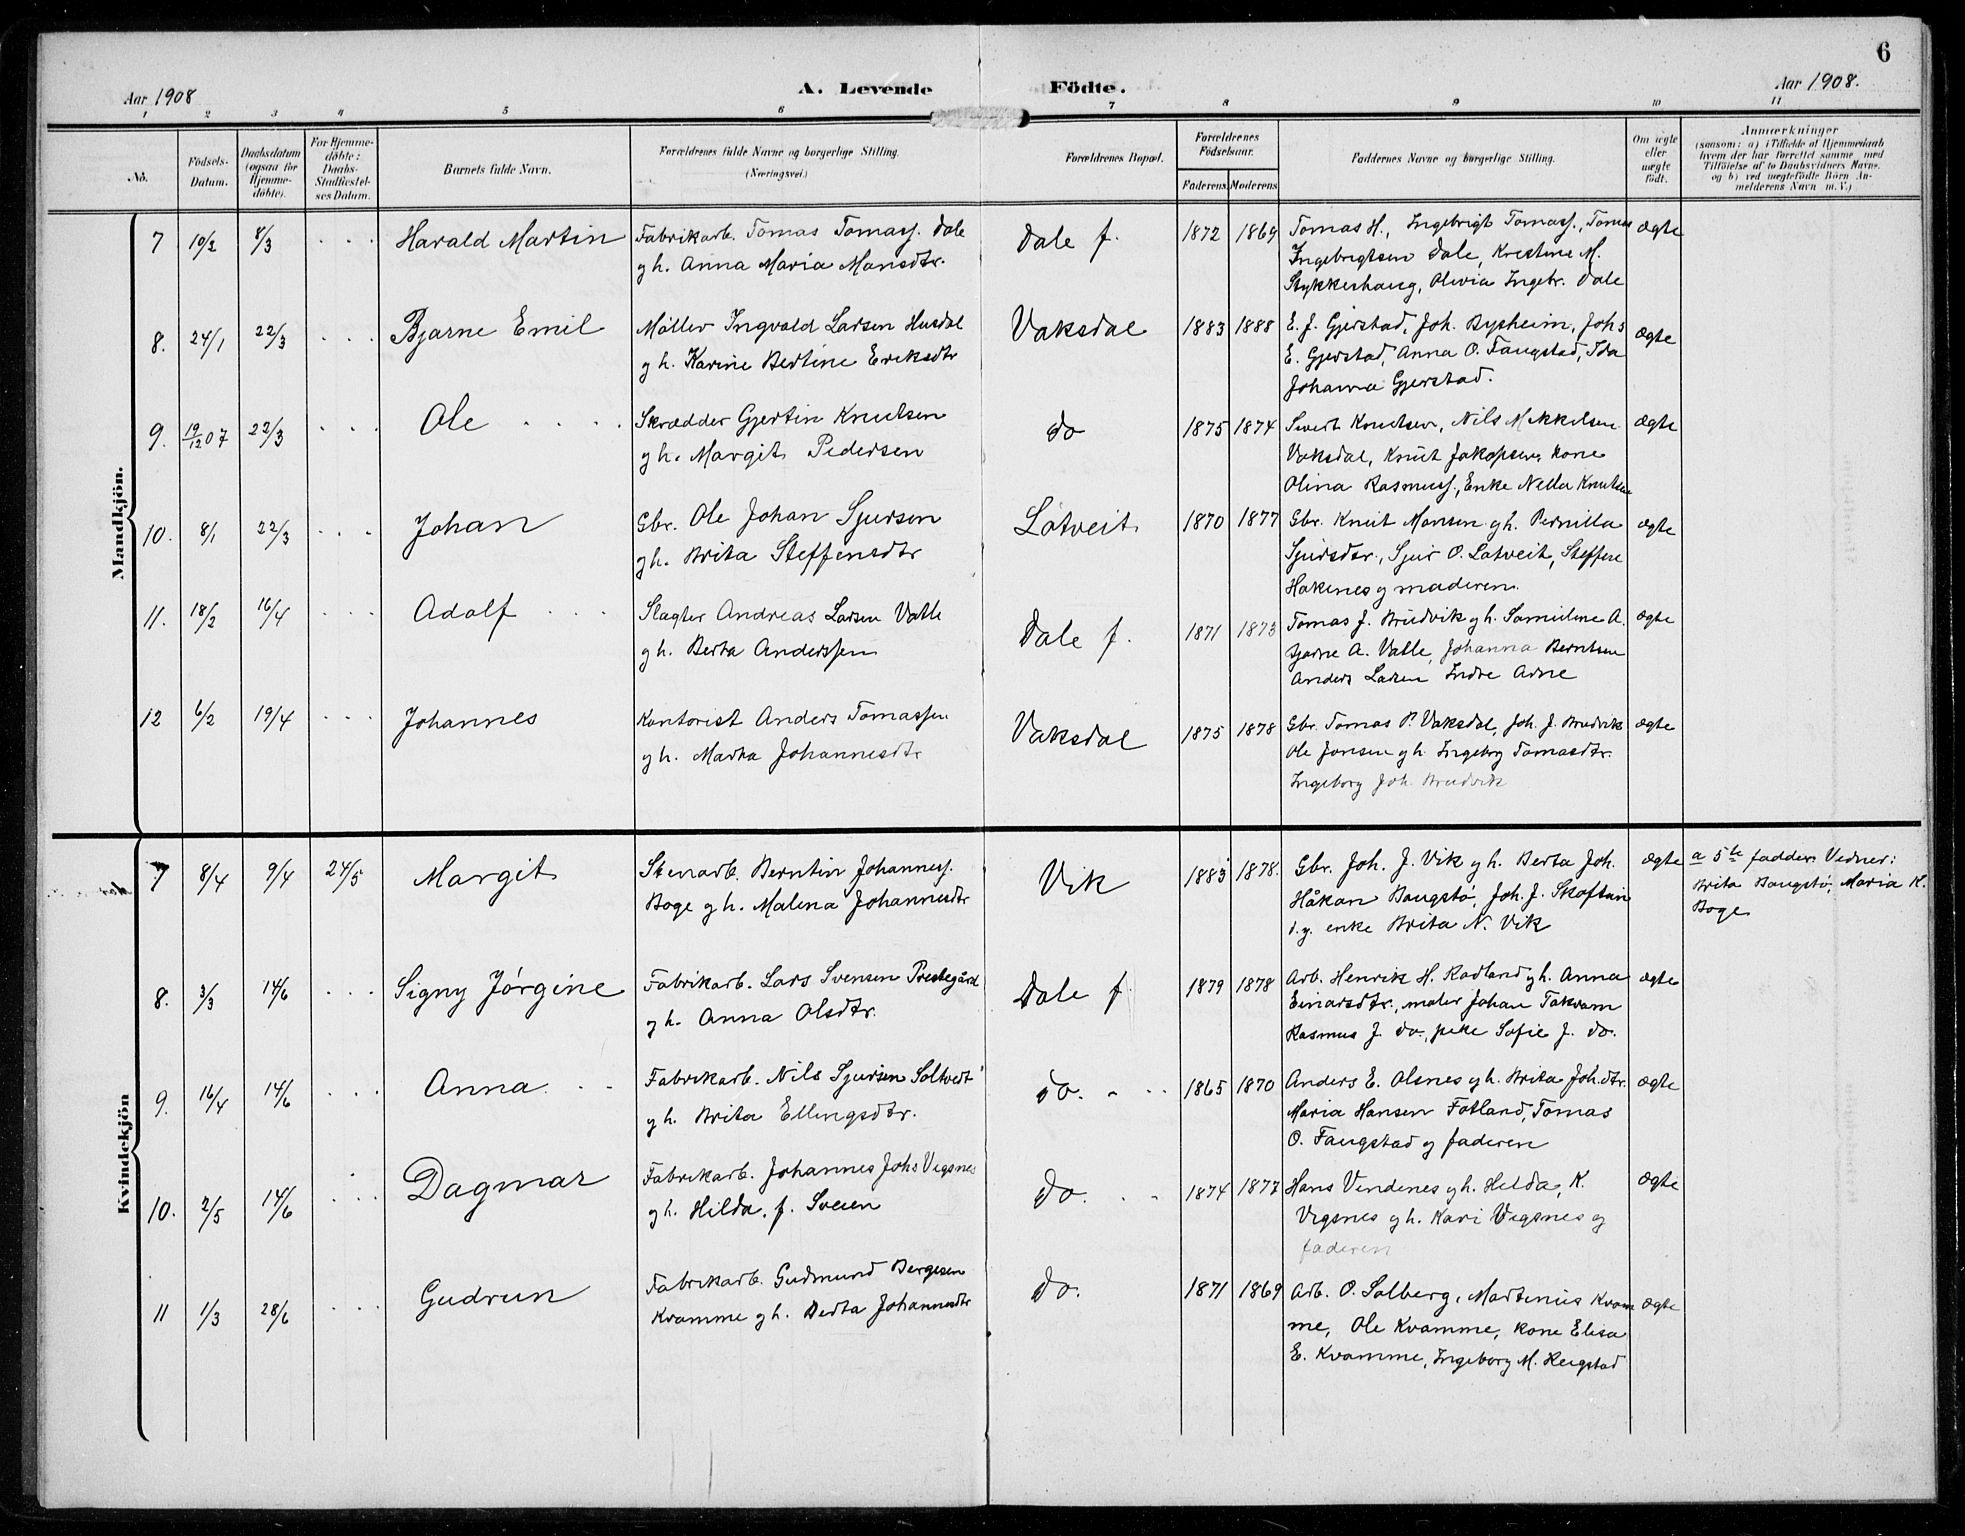 6
Aar 1908
A. Levende
Födte.
Aar 1908.
1 2 3 4 5 6 7 8 9 10 11
No.
Födsels-Datum.
Daabsdatum (ogsaa for Hjemme-döbte).
For Hjemme-döbte: Daabs-Stadfæstel-ses Datum.
Barnets fulde Navn.
Forældrenes fulde Navne og borgerlige Stilling. (Næringsvei.)
Forældrenes Bopæl.
Forældrenes Födselsaar.
Faderens. Moderens.
Faddernes Navne og borgerlige Stilling.
Om ægte eller uægte födt.
Anmærkninger
(saasom: a) i Tilfælde af Hjemmedaab
hvem der har forrettet samme, med
Tilföielse af to Daabsvidners Navne,
og b) ved uægtefödte Börn An-
melderens Navn m. V.)
Mandkjön.
7 10/2 8/3 Harald Martin Fabrikarb. Tomas Tomass. Dale Dale f. 1872 1869 Tomas H., Ingebrigt Tomass., Tomas ægte
gh. Anna Maria Monsdtr. Ingebrigtsen Dale, Kristine M.
Stykkeshaug, Olivia Ingebr. Dale
8. 24/1 22/3 Bjarne Emil Møller Ingvald Larsen Husdal Vaksdal 1883 1888 E. J. Gjerstad, Joh. Bysheim, Johs ægte
gh. Karine Bertine Eriksdtr E. Gjerstad, Anna O. Faugstad, Ida
Johanna Gjerstad.
9. 19/12 07 22/3 Ole Skrædder Gjertin Knutsen do 1875 1874 Sivert Knutsen, Nils Mikkelsen ægte
gh. Margit Pedersen Vaksdal, Knut Jakopsen, kone
Olina Rasmuss., Enke Nella Knutsen
10. 8/1 22/3 Johan Gbr. Ole Johan Sjursen Lotveit 1870 1877 Gbr. Knut Monsen gh. Pernilla ægte
gh. Brita Steffensdtr Sjursdtr., Sjur O. Lotveit, Steffen
Hokenes g moderen.
11. 18/2 16/4 Adolf Slagter Andreas Larsen Valle Dale f. 1871 1873 Tomas J. Brudvik gh. Samuline A. ægte
gh. Berta Anderssen Bjarne A. Valle, Johanna Berntsen
Anders Larsen Indre Arne
12 6/2 19/4 Johannes Kontorist Anders Tomassen Vaksdal 1875 1878 Gbr. Tomas P. Vaksdal, Joh. J. Brudvik ægte
gh. Marta Johannesdtr Ole Jonsen gh. Ingeborg Tomasdtr.
Ingeborg Joh. Brudvik
Kvindekjön
7 8/4 9/4 24/5 Margit Stenarb. Berntin Johanness. Vik 1883 1878. Gbr. Joh. J. Vik gh. Berta Joh. ægte a 5te fadder. Vedner:
Boge gh. Malena Johannesdtr Håkan Baugstø, Joh. J. Skoftun Brita Baugstø, Maria K.
d.y. enke Brita N. Vik Boge
8. 3/3 14/6 Signy Jórgine Fabrikarb. Lars Svensen Prestegård Dale f 1879 1878 Arb. Henrik H. Rodland gh. Anna ægte
gh. Anna Olsdtr. Einarsdtr., maler Johan Takvam
Rasmus J. do., pike Sofie J. do.
9. 16/4 14/6 Anna Fabrikarb. Nils Sjursen Soltvedt do. 1865 1870 Anders E. Olsnes gh. Brita Joh.dtr. ægte
gh. Brita Ellingsdtr. Maria Hansen Fotland, Tomas
O. Faugstad g faderen
10. 2/5 14/6 Dagmar Fabrikarb. Johannes Johs Vegsnes do. 1874 1877 Hans Vindenes gh. Hilda, K. ægte
gh. Hilda, f. Sveen Vegsnes gh. Kari Vegsnes g
faderen
11 1/3 28/6 Gudrun Fabrikarb. Gudmund Bergesen do. 1871 1869 Arb. O. Solberg, Martinius Kvam ægte
Kvamme gh. Berta Johannesdtr me, Ole Kvamme, kone Elisa
E. Kvamme, Ingeborg M. Heugstad